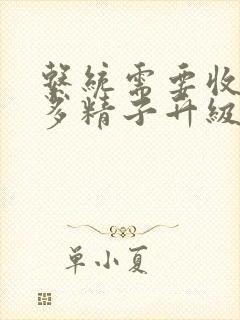 系統需要收
多精子升級
单小夏